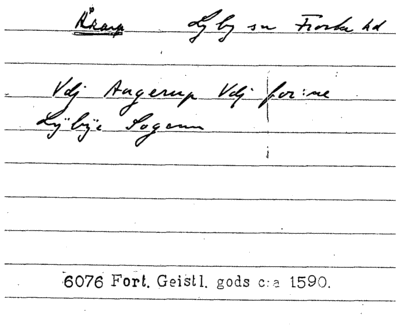 Åkarp Lyby sn Frosta hd
Vdj Aagerup Vdj for:ne
Lÿbÿe Sogenn
6076 Fort. Geistl. gods c:a 1590.